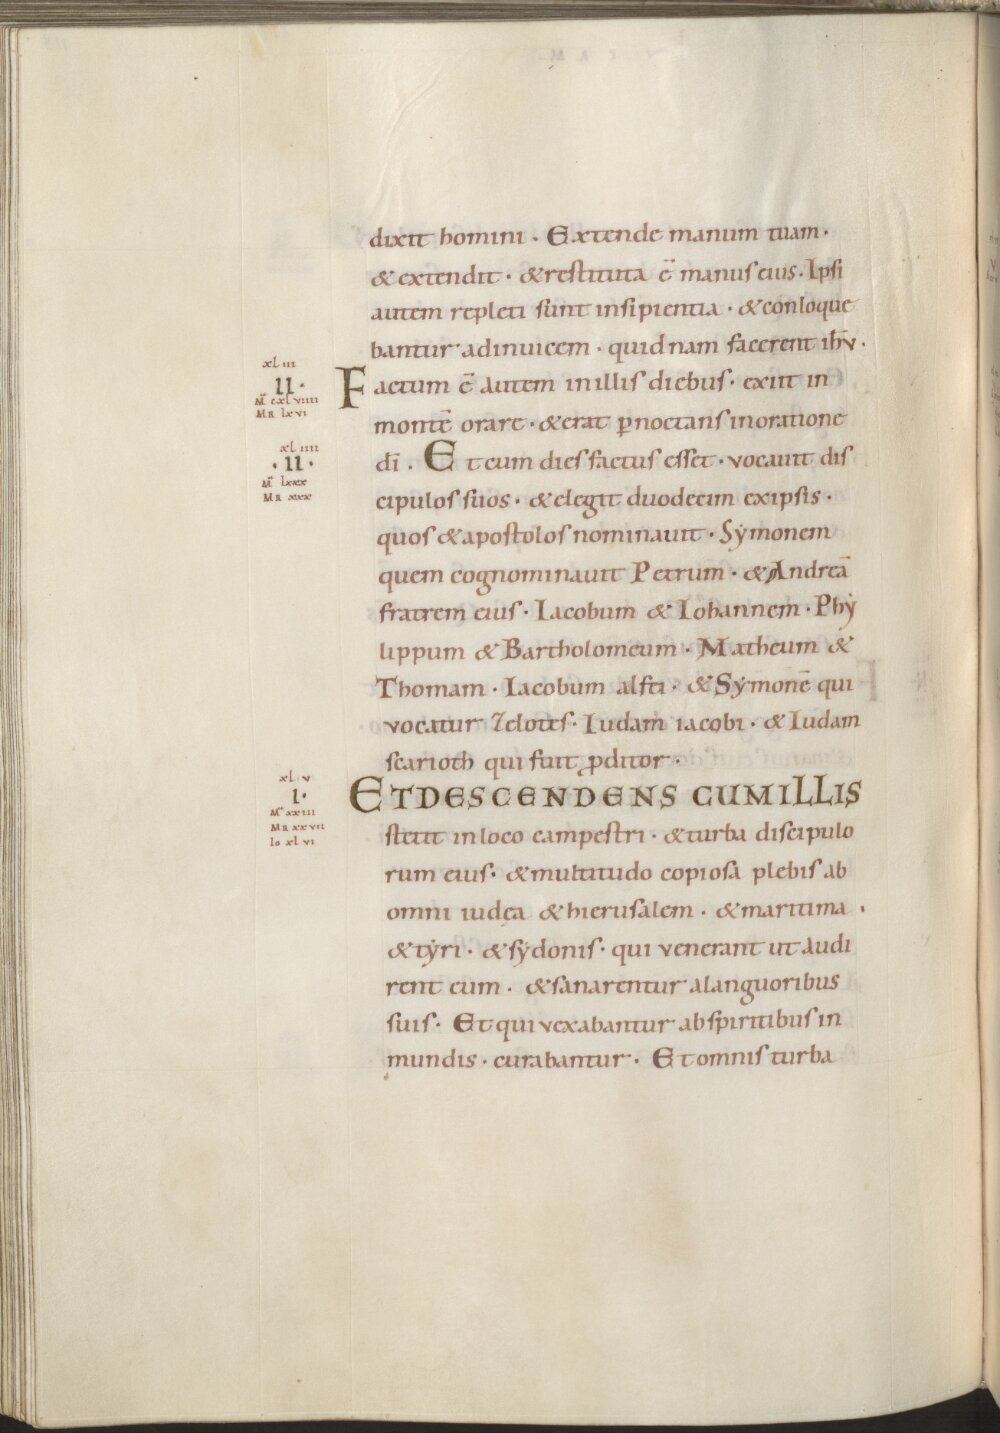 dixit homini · Extende manum tuam ·
& extendit · & restituta ē manus eius · Ipsi
autem repleti sunt insipientia · & conloque
bantur adinuicem · quidnam facerent ih̄u ·
xl iii
II ·
M̄ cxl viiii
MR lxvi
Factum ē autem inillis diebus · exiit in
montē orare · & erat p̱noctans inoratione
xl iiii
· II ·
M̄ lxxx
MR xxx
dī . Et cum dies factus esset · vocauit dis
cipulos suos · & elegit duodecim exipsis ·
quos & apostolos nominauit · Sẏmonem
quem cognominauit Petrum · & Andreā
fratrem eius · Iacobum & Iohannem · Phẏ
lippum & Bartholomeum · Matheum &
Thomam · Iacobum alfei · & Sẏmonē qui
vocatur Zelotes · Iudam iacobi · & Iudam
scarioth qui fuit ꝓditor ·
xl v
I ·
M̄ xxiii
MR xxvii
Io xl vi
ET DESCENDENS CUM ILLIS
stetit inloco campestri · & turba discipulo
rum eius · & multitudo copiosa plebis ab
omni iudęa & hierusalem · & maritima ·
& tẏri · & sẏdonis · qui venerant ut audi
rent eum · & sanarentur alanguoribus
suis · Et qui vexabantur abspiritibus in
mundis · curabantur · Et omnis turba